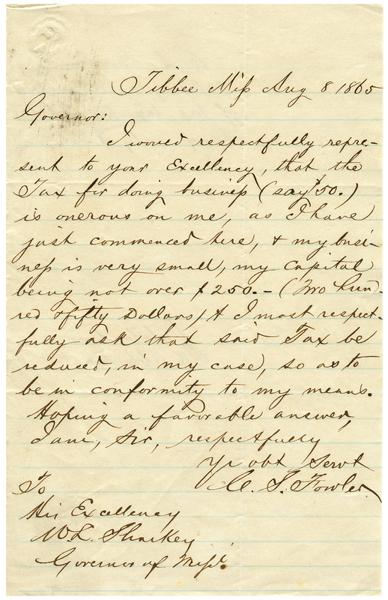 Tibbee Miss Aug 8 1865
Governor:
I would respectfully repre-
sent to your Excellency, that the
Tax for doing business (say $50.)
is onerous on me, as I have
just commenced here, & my busi-
ness is very small, my capital
being not over $250.- (Two hund-
red & fifty Dollars) & I most respect-
fully ask that said Tax be
reduced, in my case, so as to
be in conformity to my means.
Hoping a favorable answer,
I am, Sir, respectfully
Yr obt Servt
C. S. Fowler
To
His Excellency
W L Sharkey
Governor of Missi.